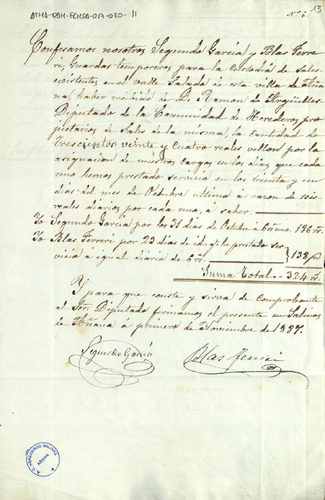 ATHA-DAH-FCHSA-019-020-11
Nº 6. 13
Confesamos nosotros Segundo Garcia y Blas Ferre-
ri, Guardas temporeros para la custodia de sales
existentes en el valle Salado de esta villa de Aña-
na, haber recibido de D. Ramon de Argüelles
Diputado de la Comunidad de Herederos pro-
pietarios de Sales de la misma, la cantidad de
trescientos veinte y cuatro reales vellon por la
asignacion de nuestros cargos en los dias que cada
uno hemos prestado servicio en los treinta y un
dias del mes de Octubre ultimo á razon de seis
reales diarios por cada uno, á saber.
Yo Segundo Garcia por 31 dias de Octubre á 6 rs uno. 186 rs
Yo Blas Ferreri por 23 dias de id. que he prestado ser-
vicio á igual diario de 6 rs 138
Suma total 324 rs
Y para que conste y sirva de Comprobante
al Sor. Diputado firmamos el presente en Salinas
de Añana á primero de Noviembre de 1887.
Segundo Garcia Blas Ferreri
AÑANA